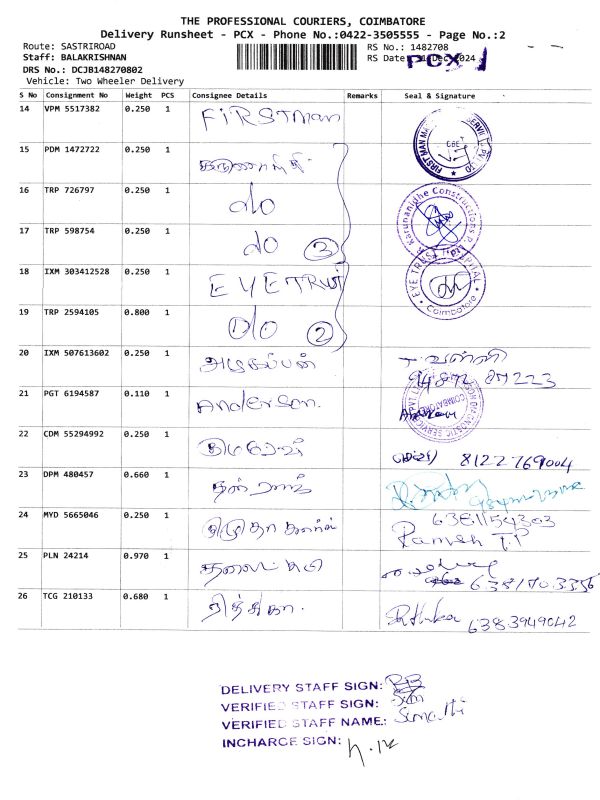 THE PROFESSIONAL COURIERS, COIMBATORE
Delivery Runsheet - PCX - Phone No.:0422-3505555 - Page No.:2
Route: SASTRIROAD
RS No.: 1482708
Staff: BALAKRISHNAN
RS Date: Dec 2024 PCX
DRS No.: DCJB148270802
Vehicle: Two Wheeler Delivery
S No Consignment No Weight PCS Consignee Details Remarks Seal & Signature
14 VPM 5517382 0.250 1 FIRSTman
15 PDM 1472722 0.250 1
16 TRP 726797 0.250 1 d/o
Karunanidhe Constructions P
17 TRP 598754 0.250 1 do 3
18 IXM 303412528 0.250 1 EYETRUST
EYE TRUST HOSPITAL Coimbatore
19 TRP 2594105 0.800 1 D/o 2
20 IXM 507613602 0.250 1 அழகப்பன் வள்ளி
94872 87223
21 PGT 6194587 0.110 1 Anderson.
22 CDM 55294992 0.250 1 8122769004
23 DPM 480457 0.660 1
24 MYD 5665046 0.250 1 6381154303
Ramesh T.P
25 PLN 24214 0.970 1 6381703356
26 TCG 210133 0.680 1 ரித்திகா. Rithika 6383949042
DELIVERY STAFF SIGN:
VERIFIED STAFF SIGN:
VERIFIED STAFF NAME: Sumathi
INCHARGE SIGN: